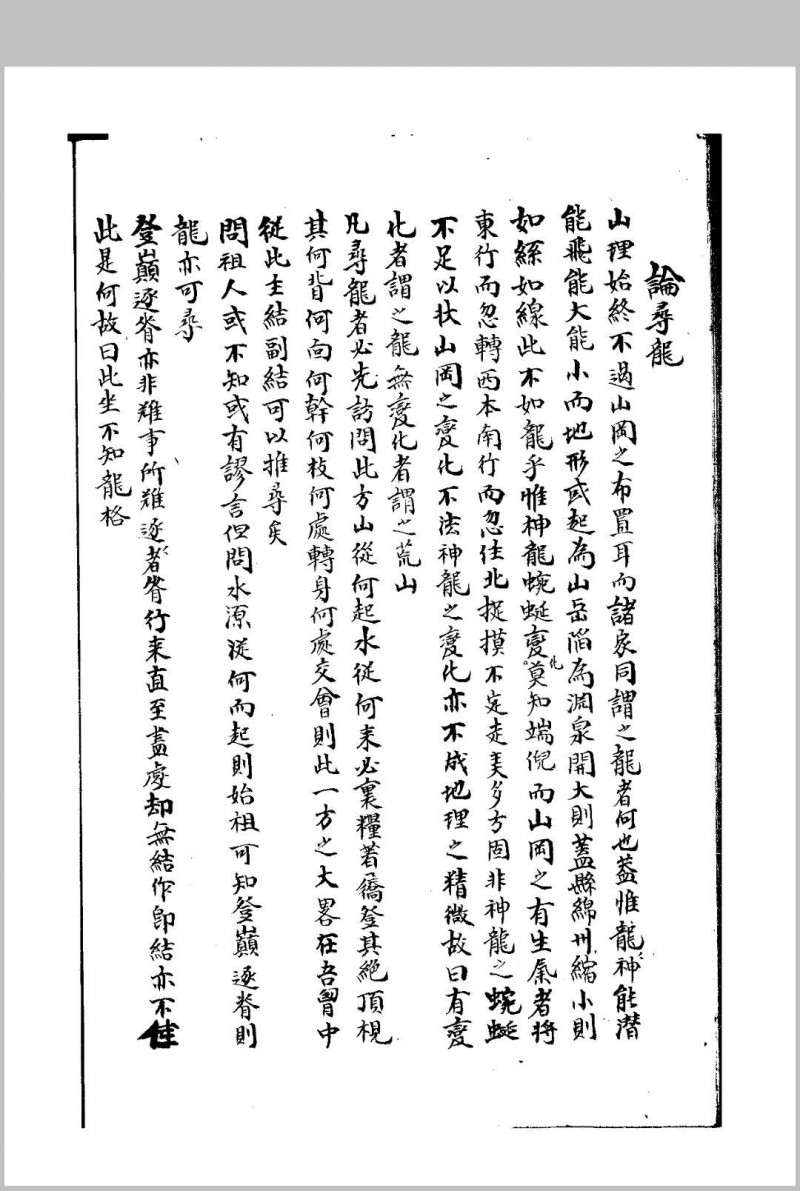 論尋龍
山理始終不過山岡之布置耳而諸家同謂之龍者何也蓋惟龍神能潛
能飛能大能小而地形或起為山岳陷為淵泉開大則蓋縣綿州縮小則
如絲如線此不如龍乎惟神龍蜿蜒變化莫知端倪而山岡之有生氣者將
東行而忽轉西本南行而忽往北捉摸不定走美多方固非神龍之蜿蜒
不足以狀山岡之變化不法神龍之變化亦不成地理之精微故曰有變
化者謂之龍無變化者謂之荒山
凡尋龍者必先訪問此方山從何起水從何來必裹糧著屩登其絕頂視
其何背何向何幹何枝何處轉身何處交會則此一方之大畧在吾胷中
從此主結副結可以推尋矣
問祖人或不知或有謬言但問水源從何而起則始祖可知登巔逐脊則
龍亦可尋
登巔逐脊亦非難事所難逐者脊行來直至盡處却無結作即結亦不佳
此是何故曰此坐不知龍格